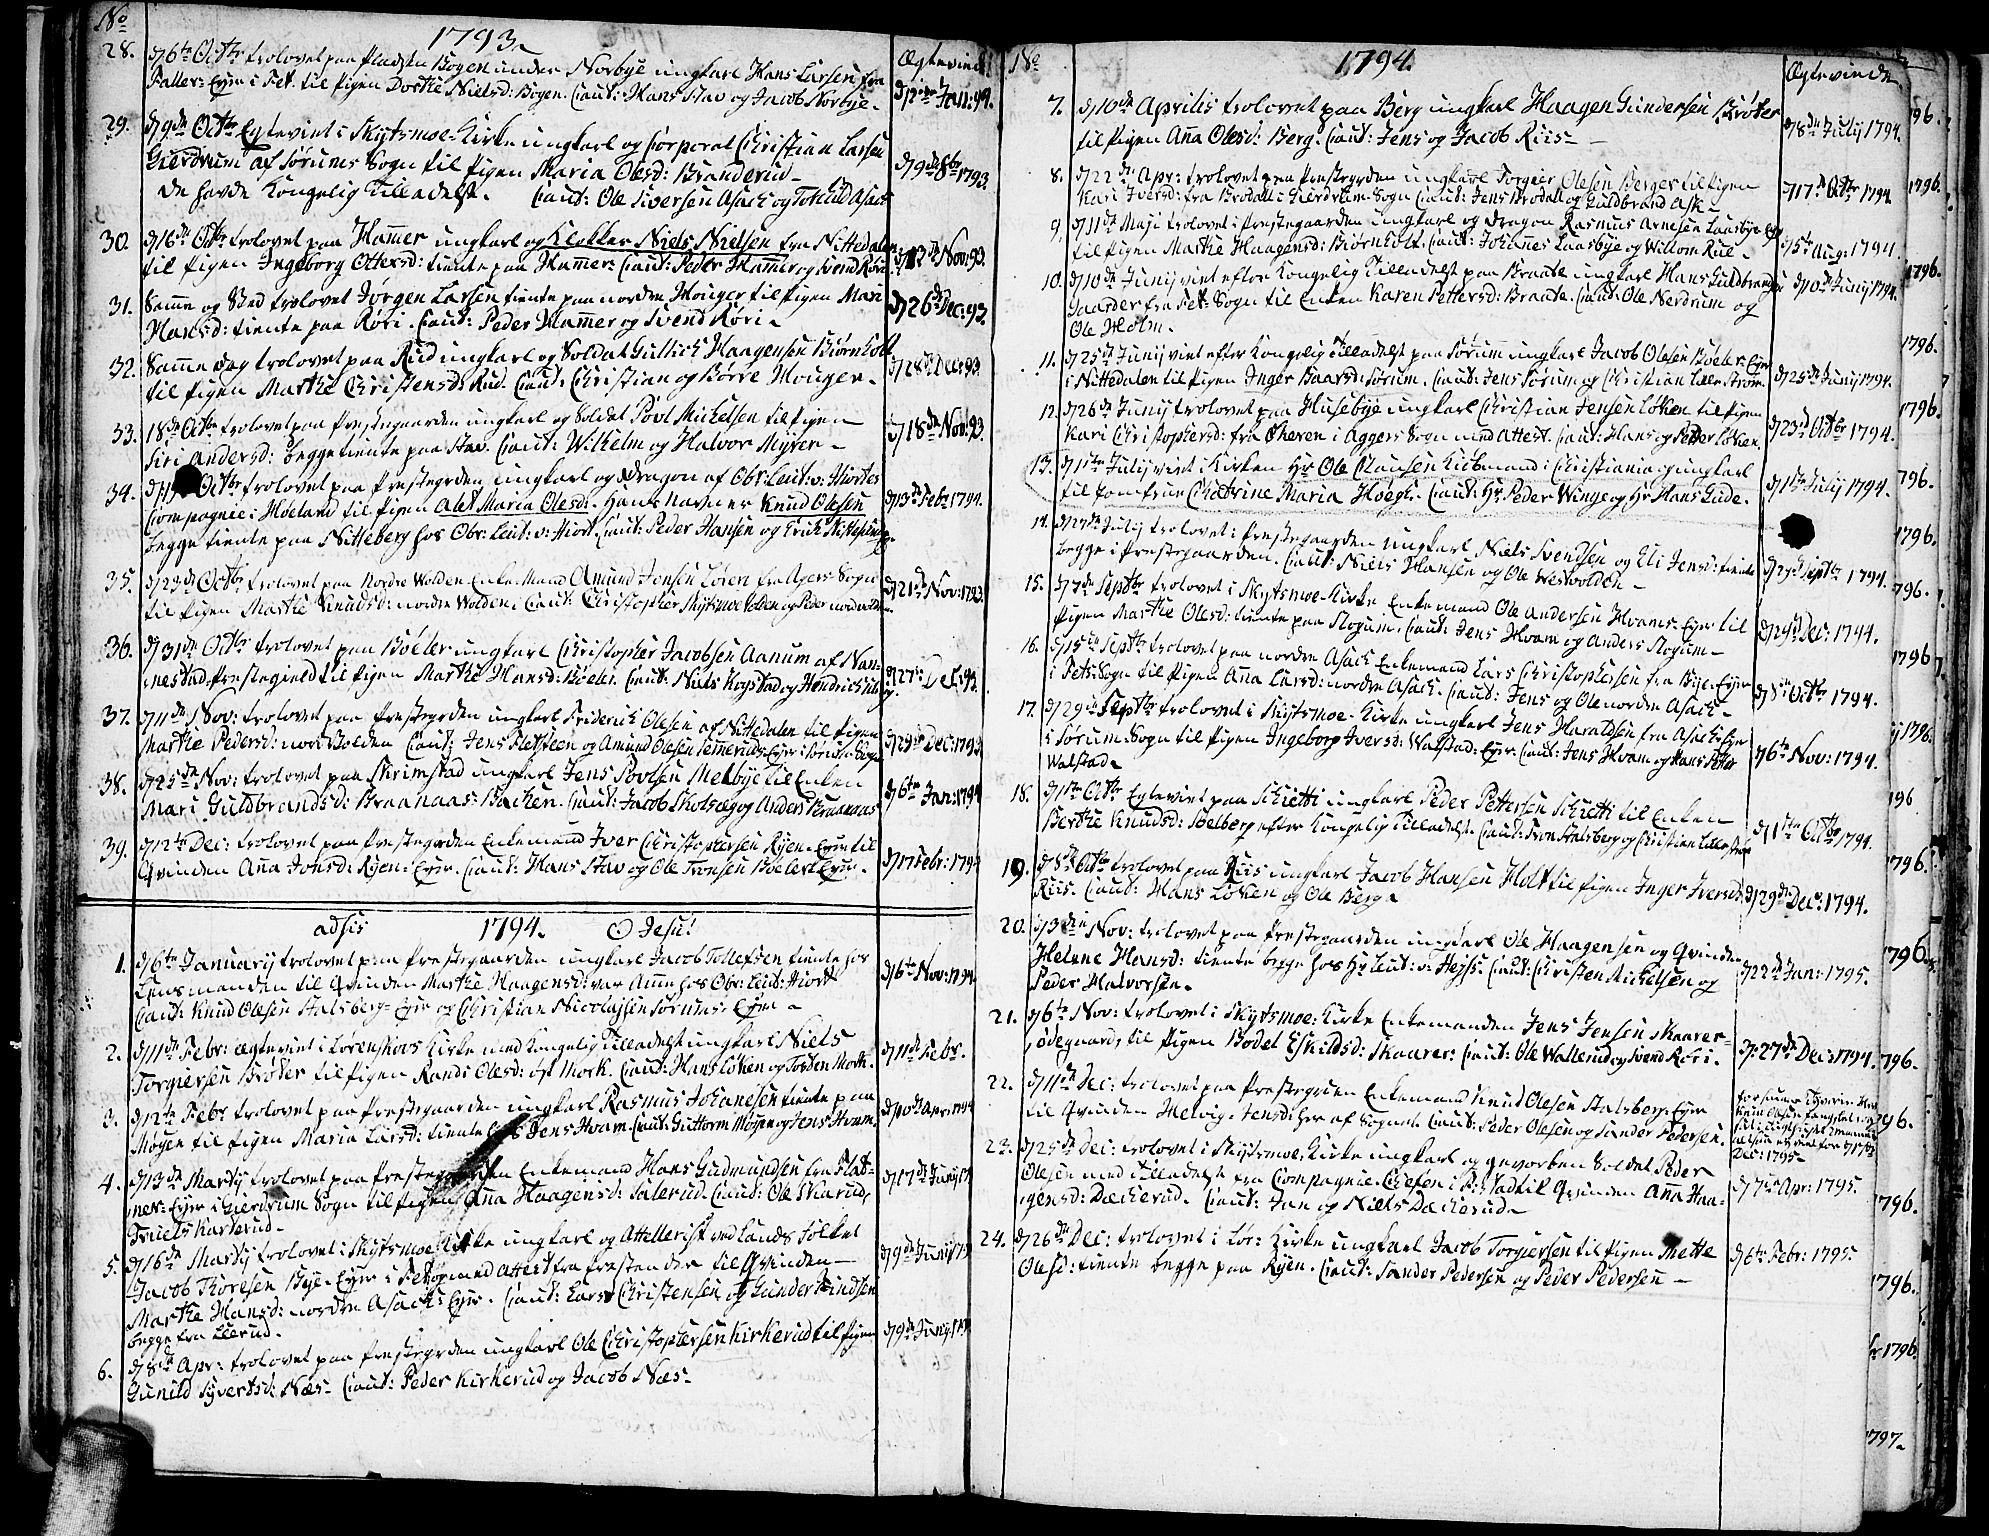 No 1793. Ægtevied
28. d 6te Octbr trolovet paa Pladsen Bogen under Norbye ungkarl Hans Larsen fra
Faller-Eyer i Fet til Pigen Dorthe Nielsd: Bogen. Caut: Hans Stav og Jacob Norbye. Jan: 94.
29. d 9de Octbr Egteviet i Skydtsmoe-Kirke ungkarl og Corporal Christian Larsen
Gierdrum af Sørums Sogn til Pigen Maria Olesd: Branderud d 9de 8br 1793.
De havde Kongelig Tilladelse. Caut: Ole Siversen Asach og Asach
30. d 16de Octbr trolovet paa Hamer ungkarl og Klokker Niels Nielsen fra Nittedalen
til Pigen Ingeborg Ottersd: tiente paa Hamer. Caut: Peder Hamer og Svend Røri Nov: 93.
31. Samme og Sted trolovet Jørgen Larsen tiente paa nordre Mouger til Pigen Mari
Hansd: tiente paa Røri. Caut: Peder Hamer og Svend Røri d 26de Dec: 93.
32. Samme dag trolovet paa Rud ungkarl og Soldat Gullich Haagensen Biørnholt
til Pigen Marthe Christensd: Rud. Caut: Christian og Børre Mouger. d 28de Dec: 93.
33. 18de Octbr trolovet paa Prestegaarden ungkarl og Soldat Povl Michelsen til Pigen
Siri Andersd: begge tiente paa Stav. Caut: Wilhelm og Halvor Myrer d 18de Nov: 93.
34. Octbr trolovet paa Prestegrden ungkarl og Dragon af Obr: Leut: v: Hiortes
Compagnie i Høeland til Pigen Alet Maria Olesd: Hans Navn er Knud Olesen d 13de Feb: 1794.
begge tiente paa Nitteberg hos Obr: Leut: v: Hiort. Caut: Peder Hansen og Erich
35. d 23de Octbr trolovet paa Nordre Wolden Enke Mand Amund Jonsen Loren fra Agers Sogn
til Pigen Marthe Knudsd: nordre Wolden. Caut: Christopher Skydtsmoevolden og Peder nordvolden d 21de Nov: 1793.
36. d 31te Octbr trolovet paa Bøeler ungkarl Christopher Jacobsen Aanum af Nan-
nestad Prestegield til Pigen Marthe Hansd: Bøeler. Caut: Niels Kogstad og Hendrich d 27de Dec: 93.
37. d 11te Nov: trolovet paa Prestegrden ungkarl Friderich Olesen af Nittedalen til Pigen
Marthe Pedersd: nord Volden Caut: Jens Fletsteen og Amund Olesen Eyer i Sørum Sogn d 29de Dec: 1793
38. d 25de Nov: trolovet paa Skrimstad ungkarl Jens Povlsen Melbye til Enken
Mari Guldbrandsd: Braanaas-Bachen. Caut: Jacob Skotseg og Anders Braanaas d 6te Jan: 1794
39. d 12te Dec: trolovet paa Prestegrden Enkemand Iver Christophersen Ryen-Eyer til
Qvinden Ana Jonsd: Ryen-Eyer. Caut: Hans Stav og Ole Tronsen Bøeler Eyer. Febr: 1794
adsis 1794. O Jesu!
1. d 6te Januarij trolovet paa Prestegaarden ungkarl Jacob Tollefsen tiente hos
Lensmanden til Qvinden Marthe Haagensd: var Ame hos Obr: Leut: Hiort d 6te Nov: 1794
Caut: Knud Olesen Stalsberg-Eyer og Christian Nicolajsen Sørums-Eyer
2. d 11te Febr: ægteviet i Lørenskovs Kirke med Kongelig Tilladelse ungkarl Niels
Torgiersen Brøter til Pigen Randi Olesd: øst Mork. Caut: Hans Løken og Torsten Mork. d 11te Febr.
3. d 12te Febr trolovet paa Prestegaarden ungkarl Rasmus Johanesen tiente paa
Moyen til Pigen Maria Larsd: tiente hos Jens Hvam. Caut: Guttorm Moyen og Jens Hvam. d 10de Apr: 1794
4. d 13de Martij trolovet paa Prestegaarden Enkemand Hans Gudmundsen fra Flat-
ner-Eyer i Gierdrum Sogn til Pigen Ana Haagensd: Salerud Caut: Ole Skierud, d 17de Junij
Truels Karterud.
5. d 16de Martij trolovet i Skydtsmoe Kirke ungkarl og Attellerist ved Lands Folket
Jacob Thoresen Bye-Eyer i Fet med Attest fra Presten der til Qvinden d 9de Junij
Marthe Hansd: nordre Asach-Eyer. Caut: Lars Christensen og Gunder
begge fra Lierud.
6. d 8de Apr: trolovet paa Prestegrden ungkarl Ole Christophersen Kirkerud til Pigen d 9de Junij
Gunild Syvertsd: Næs. Caut: Peder Kirkerud og Jacob Næs.
No 1794. Ægteviede
7. d 10de Aprilis trolovet paa Berg ungkarl Haagen Gundersen Brøter
til Pigen Ana Olesd: Berg. Caut: Jens og Jacob Riis d 8de Julij 1794.
8. d 22de Apr: trolovet paa Prestegrden ungkarl Torgier Olesen Berger til Pigen
Kari Iversd: fra Brodal i Gierdrum Sogn Caut: Jens Brodal og Guldbrand Ask d 17de Octbr 1794
9. d 11te Maji trolovet i Prestegaarden ungkarl og Dragon Rasmus Arnesen Laasbye Eyer
til Pigen Marthe Haagensd: Biørnholt. Caut: Johannes Laasbye og Willom Rul d 15de Aug: 1794.
10. d 10de Junij viet efter Kongelig Tilladelse paa Braate ungkarl Hans Guldbrandsen
Gaarder fra Fet-Sogn til Enken Karen Pettersd: Braate. Caut: Ole Nerdrum og d 10de Junij 1794.
Ole Holm.
11. d 25de Junij viet efter Kongelig Tilladelse paa Sørum ungkarl Jacob Olesen Bøeler-Eyer
i Nittedalen til Pigen Inger Baarsd: Sørum. Caut: Jens Sørum og Christian Lille Strøm. d 25de Junij 1794.
12. d 26de Junij trolovet paa Husebye ungkarl Christian Jensen Løken til Pigen
Kari Christophersd: fra Østeren i Aggers Sogn med Attest. Caut: Hans og Petter Løken. d 23de Octbr 1794.
13. d 1ste Julij viet i Kirken Hr Ole Clausen Kiøbmand i Christiania og ungkarl
til Jomfrue Chatrine Maria Høegh. Caut: Hr Peder Winge og Hr Hans Gude. d 1ste Julij 1794.
14. d 27de Julij trolovet i Prestegaarden ungkarl Niels Svendsen og Eli Jensd: tiente
begge i Prestegaarden. Caut: Niels Hansen og Ole Westvolden d 29de Septbr 1794.
15. d 7de Septbr trolovet i Skydtsmoe-Kirke Enkemand Ole Andersen Hvams-Eyer til
Pigen Marthe Olesd: tiente paa Rogum. Caut: Jens Hvam og Anders Rogum d 29de Dec: 1744.
16. d 15de Septbr trolovet paa nordre Asach Enkemand Lars Christophersen fra Bye-Eyer
i Fets-Sogn til Pigen Ana Larsd: nordre Asach. Caut: Jens og Ole nordre Asach d 8de Octbr 1794.
17. d 29de Septbr trolovet i Skydtsmoe-Kirke ungkarl Jens Haraldsen fra Asach-Eyer
i Sørum Sogn til Pigen Ingeborg Iversd: Walstad-Eyer. Caut: Jens Hvam og Hans Petter d 6te Nov: 1794.
Walstad
18. d 11te Octbr Egteviet paa Schietti ungkarl Peder Pettersen Schietti til Enken
Berthe Knudsd: Solberg efter Kongelig Tilladelse. Caut: Iver Stalsberg og Christian Lillestrøm d 11te Octbr 1794.
19. d 8de Octbr trolovet paa Riis ungkarl Jacob Hansen Holt til Pigen Inger Iversd: d 29de Dec: 1794.
Riis. Caut: Hans Løken og Ole Berg
20. d 3die Nov: trolovet paa Prestegaarden ungkarl Ole Haagensen og Qvinden
Helene Hansd: tiente begge hos Hr Leut: v: Hejss. Caut: Christen Michelsen og d 22de Jan: 1795.
Peder Halvorsen.
21. d 6te Nov: trolovet i Skydtsmoe-Kirke Enkemanden Jens Jensen Skaarer-
ødegaard, til Pigen Bodel Eskildsd: Skaarer: Caut: Ole Wallerud og Svend Røri. d 27de Dec: 1794.
22. d 11te Dec: trolovet paa Prestegrden Enkemand Knud Olesen Stalsberg-Eyer
til Qvinden Helvig Jensd: her af Sognet. Caut: Peder Olesen og Sander Pedersen.
Dec: 1795
23. d 25de Dec: trolovet i Skydtsmoe-Kirke ungkarl og gevorben Soldat Peder
Olesen med Tilladelse fra Compagnie-Chefen i Ristad til Qvinden Ana Haa-
gensd: Dæcherud. Caut: Jan og Niels Dæcherud d 7de Apr: 1795.
24. d 26de Dec: trolovet i Lør: Kirke ungkarl Jacob Torgiersen til Pigen Mette
Olesd: tiente begge paa Ryen. Caut: Sander Pedersen og Peder Pedersen d 6te Febr: 1795.
796.
1796.
1796.
1796.
1796.
796.
1796.
796.
1796
1796.
196
1796.
1796.
1796.
796.
1796.
1796.
1796.
1797.